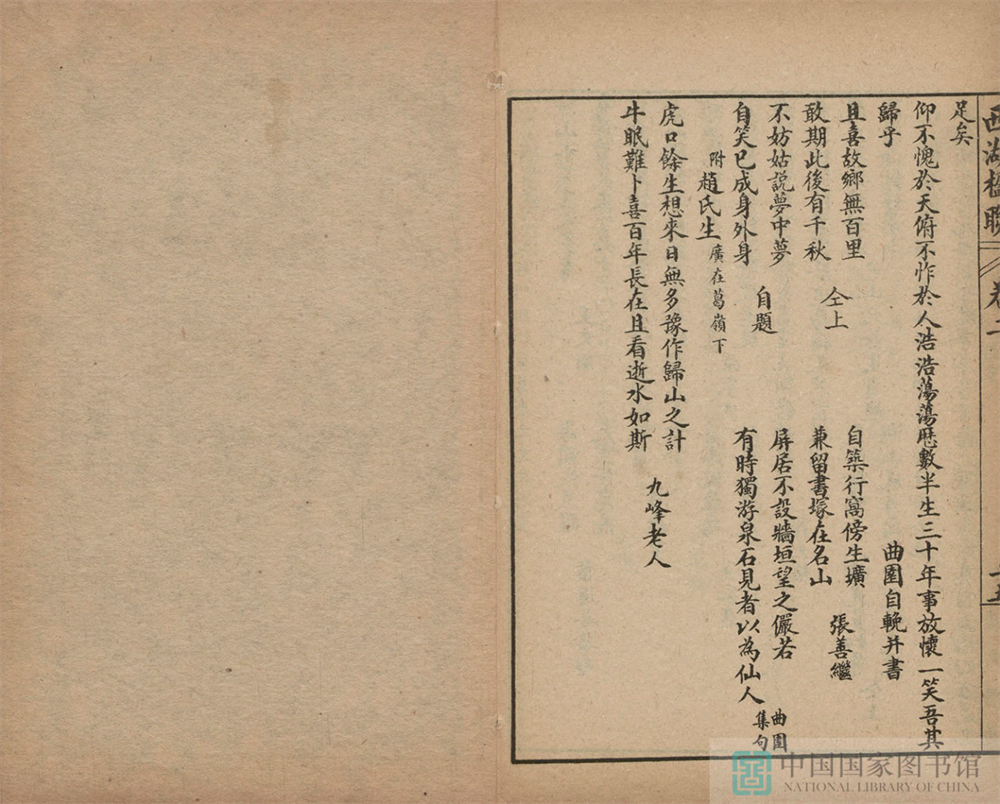 西湖楹聯
足矣
仰不愧於天俯不怍於人浩浩蕩蕩歷數半生三十年事放懷一笑吾其
歸乎 曲園自輓并書
且喜故鄉無百里
敢期此後有千秋
仝上
自築行窩傍生壙
兼留書塚在名山
張善繼
不妨姑說夢中夢
自笑已成身外身
自題
屏居不設牆垣望之儼若
有時獨游泉石見者以為仙人
曲園
集句
附趙氏生廣在葛嶺下
虎口餘生想來日無多豫作歸山之計
牛眠難卜喜百年長在且看逝水如斯
九峰老人
中国国家图书馆
NATIONAL LIBRARY OF CHINA